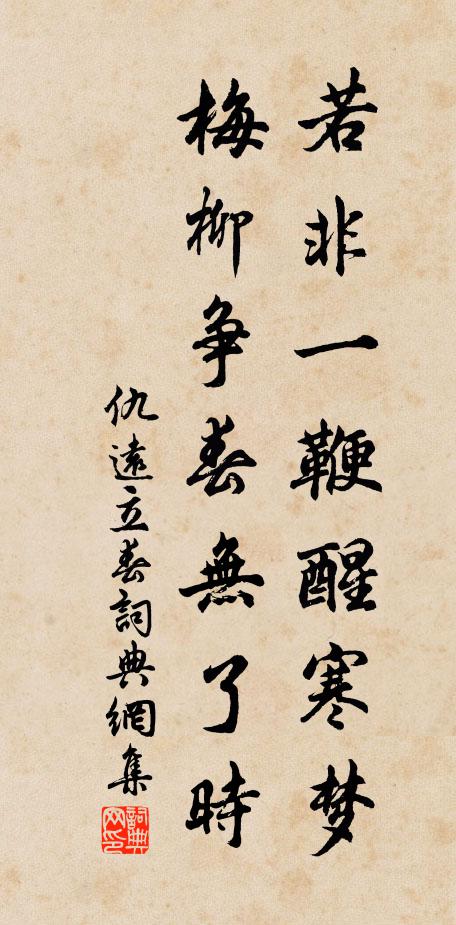 若非一鞭醒寒梦
梅柳争春無了時
仇遠立春詞典網集
詞典网印